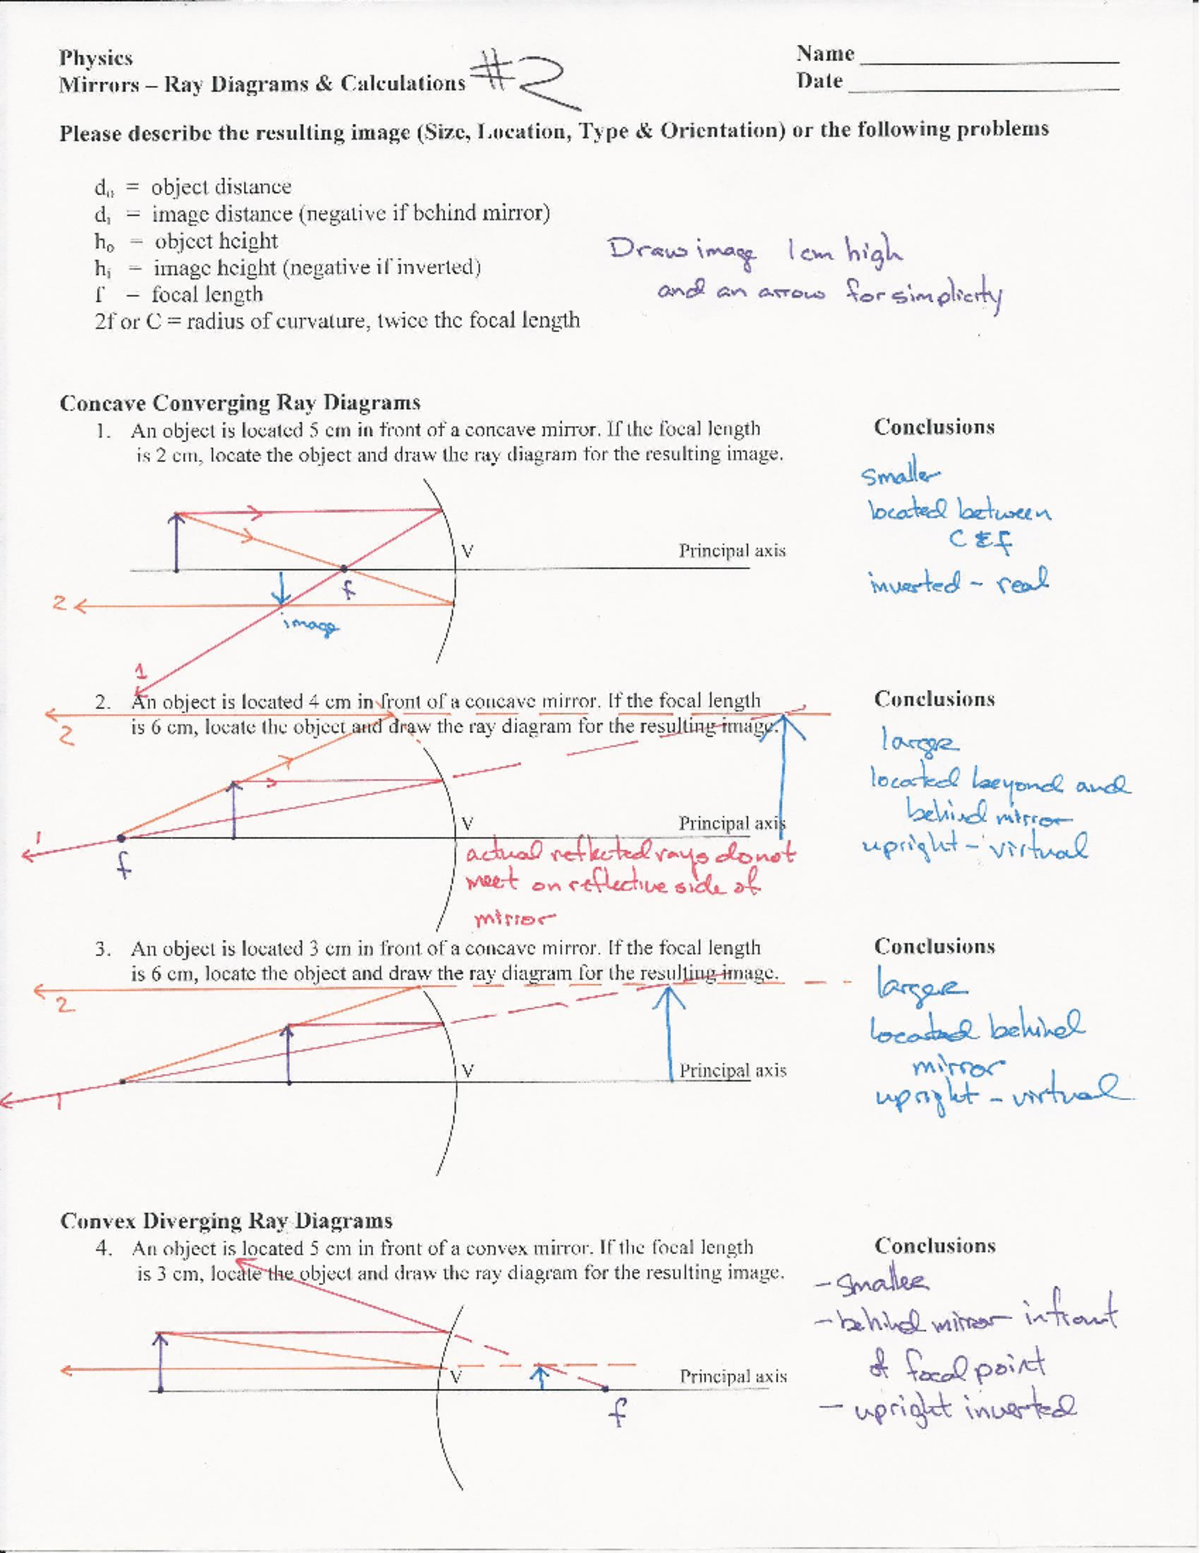 Physics
Name
Mirrors – Ray Diagrams & Calculations #2
Date
Please describe the resulting image (Size, Location, Type & Orientation) or the following problems
dₒ = object distance
dᵢ = image distance (negative if behind mirror)
hₒ = object height
hᵢ = image height (negative if inverted)
f = focal length
2f or C = radius of curvature, twice the focal length
Draw image 1cm high
and an arrow for simplicity
Concave Converging Ray Diagrams
1. An object is located 5 cm in front of a concave mirror. If the focal length
is 2 cm, locate the object and draw the ray diagram for the resulting image.
Conclusions
smaller
located between
C & f
inverted – real
V
Principal axis
f
2
image
1
2. An object is located 4 cm in front of a concave mirror. If the focal length
is 6 cm, locate the object and draw the ray diagram for the resulting image.
Conclusions
larger
located beyond and
behind mirror
upright – virtual
2
V
Principal axis
1
f
actual reflected rays do not
meet on reflective side of
mirror
3. An object is located 3 cm in front of a concave mirror. If the focal length
is 6 cm, locate the object and draw the ray diagram for the resulting image.
Conclusions
larger
located behind
mirror
upright – virtual
2
V
Principal axis
1
Convex Diverging Ray Diagrams
4. An object is located 5 cm in front of a convex mirror. If the focal length
is 3 cm, locate the object and draw the ray diagram for the resulting image.
Conclusions
– smaller
– behind mirror in front
of focal point
– upright inverted
V
Principal axis
f